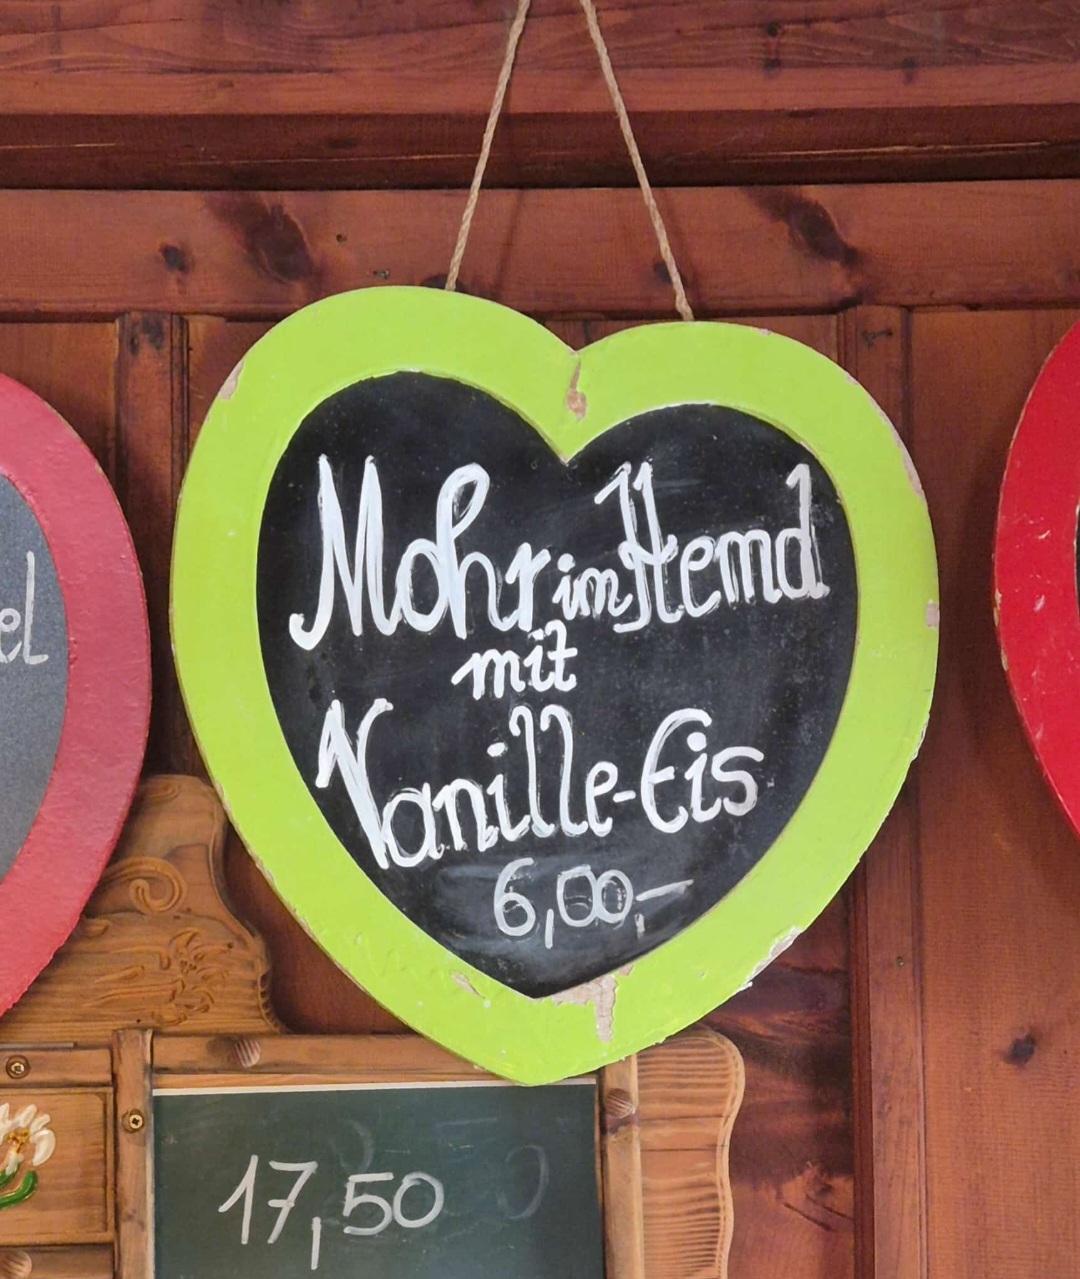 Mohr im Hemd
mit
Vanille-Eis
6,00,-
el
17,50